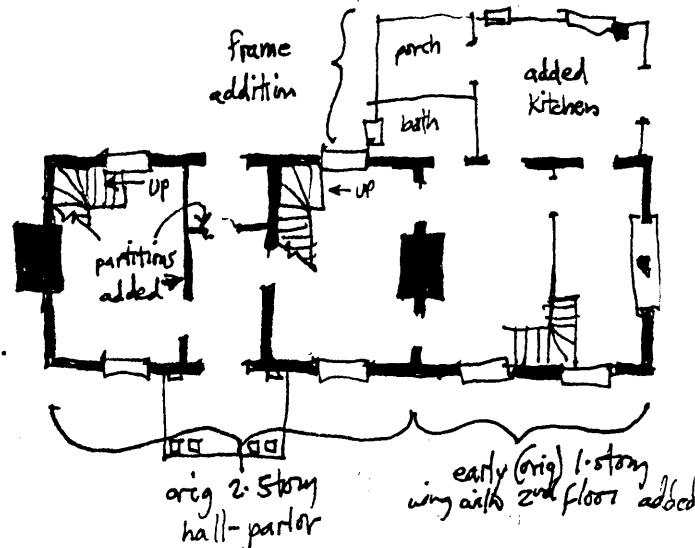 frame
addition
porch
bath
added
kitchen
UP
UP
partitions
added
orig 2-story
hall-parlor
early (orig) 1-story
wing with 2nd floor added